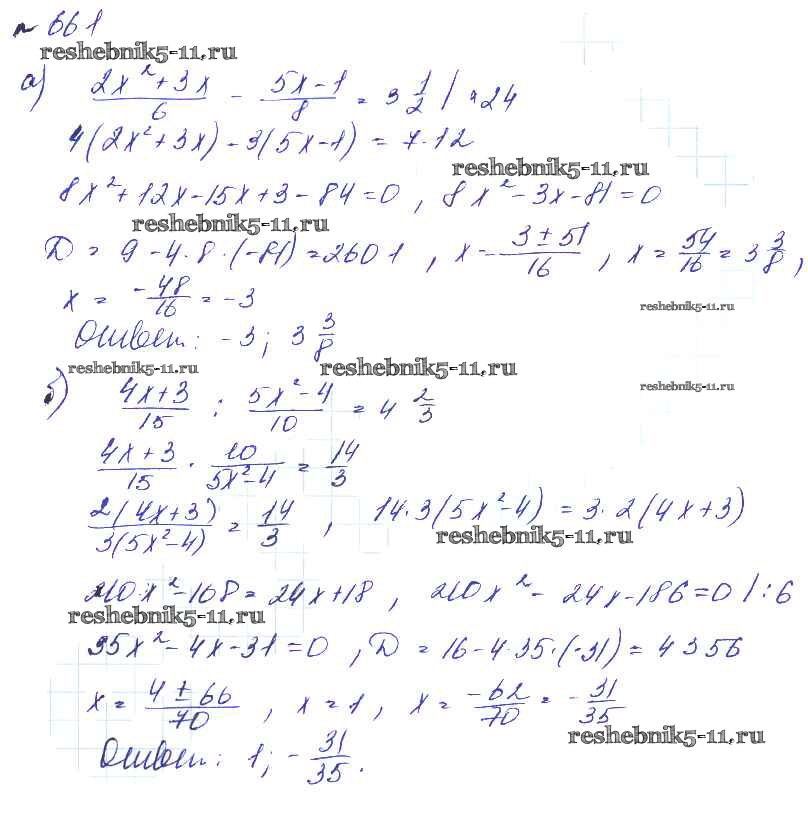 № 661
reshebnik5-11.ru
а) (2x² + 3x)/6 - (5x - 1)/8 = 3 1/2 | · 24
4(2x² + 3x) - 3(5x - 1) = 7 · 12
reshebnik5-11.ru
8x² + 12x - 15x + 3 - 84 = 0, 8x² - 3x - 81 = 0
reshebnik5-11.ru
D = 9 - 4 · 8 · (-81) = 2601, x = (3 ± 51)/16, x = 54/16 = 3 3/8,
x = -48/16 = -3
reshebnik5-11.ru
Ответ: -3; 3 3/8
reshebnik5-11.ru
reshebnik5-11.ru
reshebnik5-11.ru
б) (4x + 3)/15 : (5x² - 4)/10 = 4 2/3
(4x + 3)/15 · 10/(5x² - 4) = 14/3
2(4x + 3)/3(5x² - 4) = 14/3, 14 · 3(5x² - 4) = 3 · 2(4x + 3)
reshebnik5-11.ru
210x² - 168 = 24x + 18, 210x² - 24x - 186 = 0 | : 6
reshebnik5-11.ru
35x² - 4x - 31 = 0, D = 16 - 4 · 35 · (-31) = 4356
x = (4 ± 66)/70, x = 1, x = -62/70 = -31/35
reshebnik5-11.ru
Ответ: 1; -31/35.